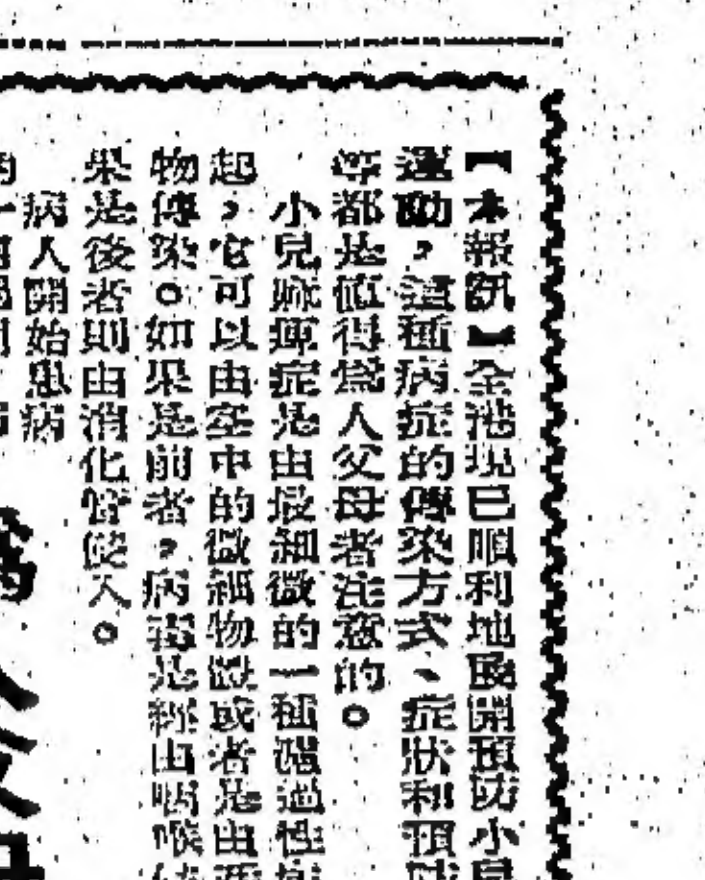 【本報訊】全港現已順利地展開預防小兒
運動,這種病症的傳染方式、症狀和預防
等都是値得爲人父母者注意的。
小兒麻痺症是由最細微的一種濾過性
起,它可以由空中的微細物體或者是由
物傳染。如果是前者,病毒是經由咽喉
果是後者則由消化管侵入。
病人開始患病
的一
爲人父母